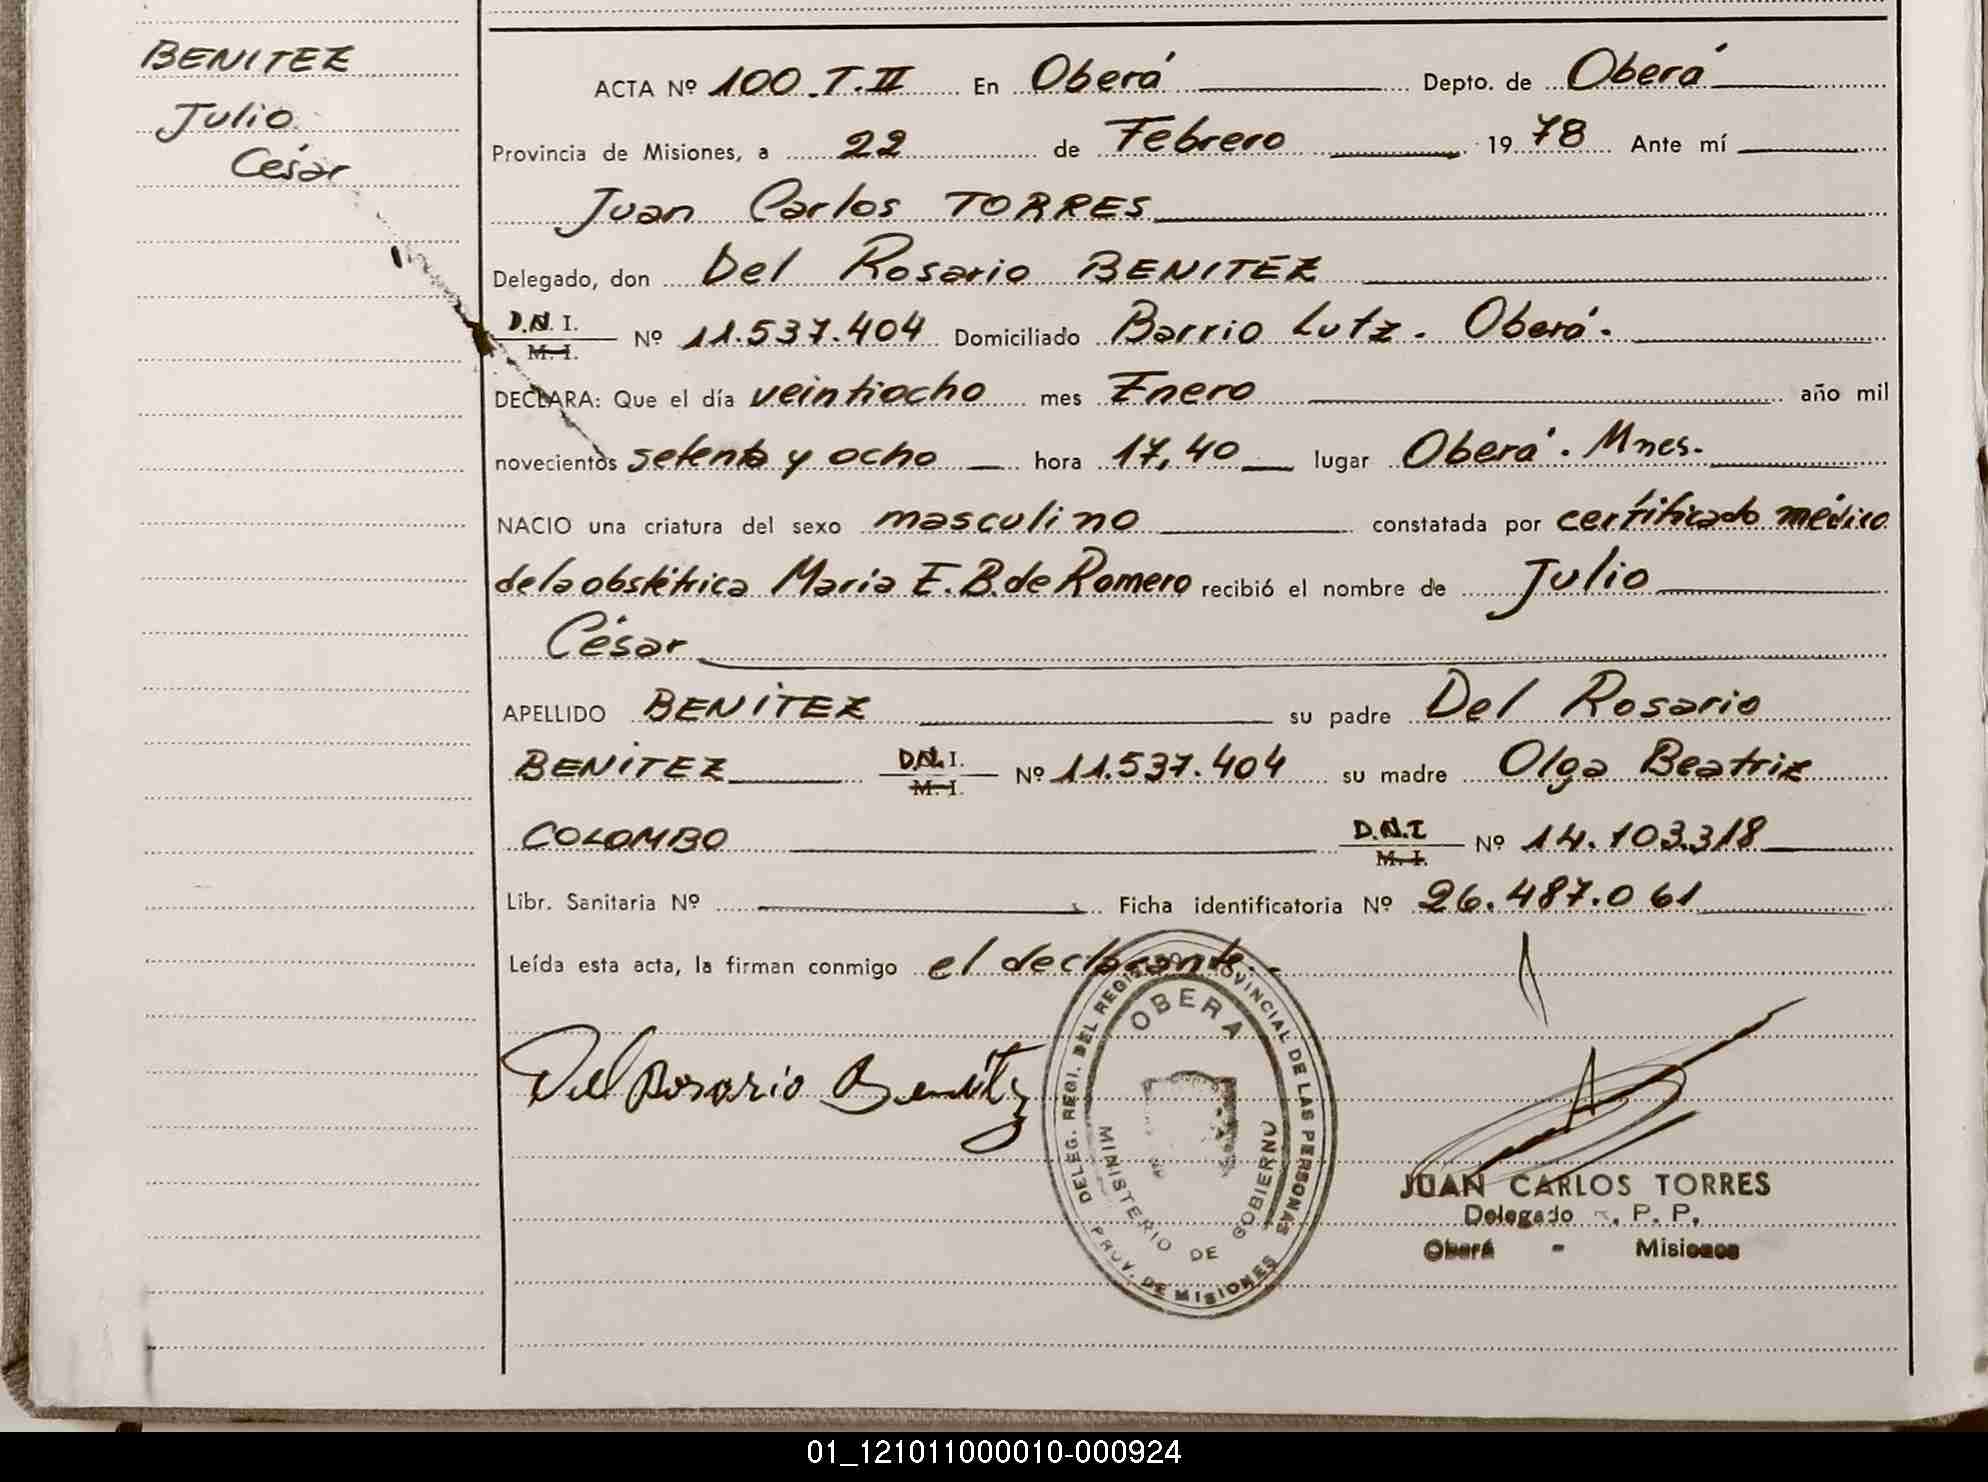 BENITEZ
Julio
César
ACTA Nº 100.T.II En Oberá Depto. de Oberá
Provincia de Misiones, a 22 de Febrero 1978 Ante mí
Juan Carlos TORRES
Delegado, don Del Rosario BENITEZ
D.N.I.
M. I. Nº 11.537.404 Domiciliado Barrio Lutz. Oberá.
DECLARA: Que el día veintiocho mes Enero año mil
novecientos setenta y ocho hora 17,40 lugar Oberá. Mnes.
NACIO una criatura del sexo masculino constatada por certificado médico
de la obstétrica Maria E. B. de Romero recibió el nombre de Julio
César
APELLIDO BENITEZ su padre Del Rosario
BENITEZ D.N.I. M. I. Nº 11.537.404 su madre Olga Beatriz
COLOMBO D.N.I M. I. Nº 14.103.318
Libr. Sanitaria Nº Ficha identificatoria Nº 26.487.061
Leída esta acta, la firman conmigo el declarante.-
Del Rosario Benítez
DELEG. REGI. DEL REGISTRO PROVINCIAL DE LAS PERSONAS
OBERA
MINISTERIO DE GOBIERNO
PROV. DE MISIONES
JUAN CARLOS TORRES
Delegado P. P.
Oberá - Misiones
01_121011000010-000924